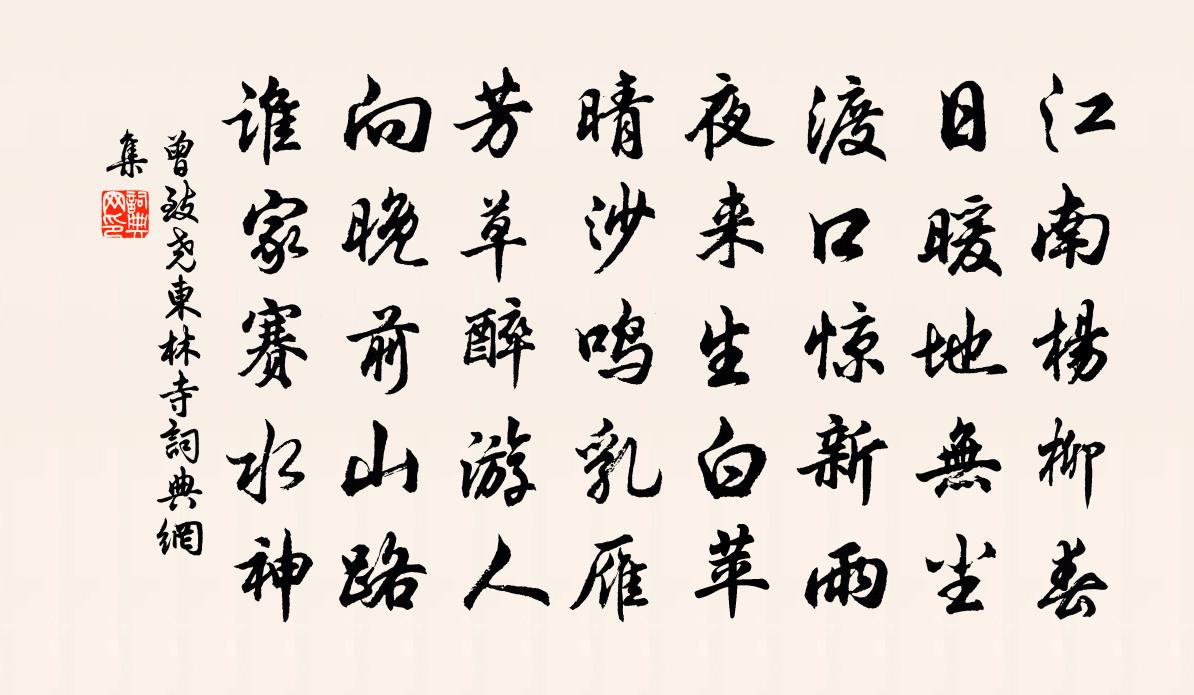 江南楊柳春
日暖地無尘
渡口惊新雨
夜来生白苹
晴沙鸣乳雁
芳草醉游人
向晚前山路
谁家赛水神
曾致尧東林寺詞典網
集
詞典
网印